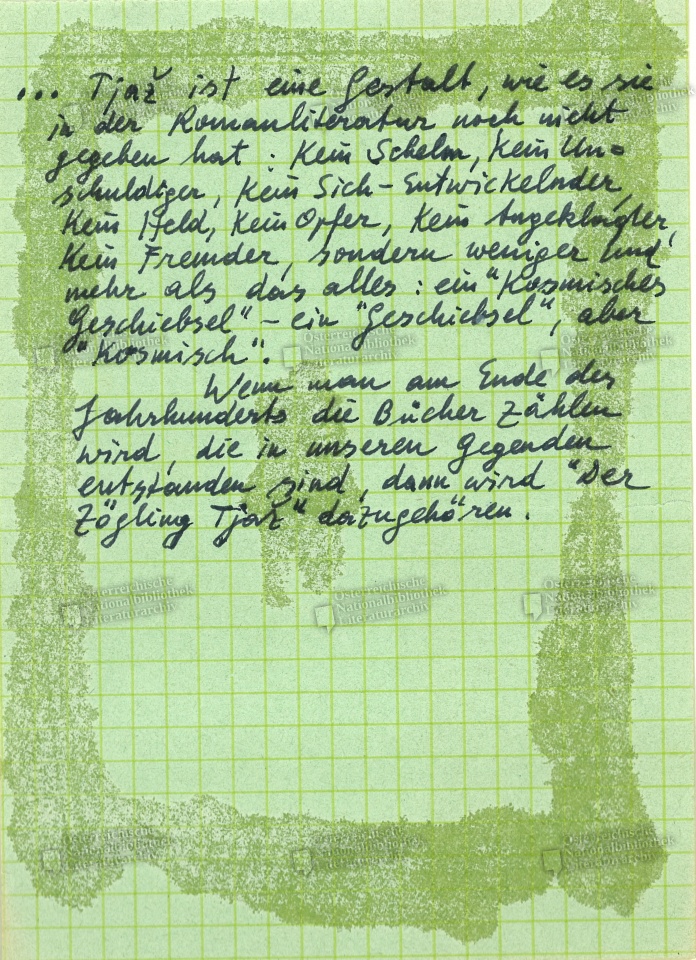 ... Tjaž ist eine Gestalt, wie es sie
in der Romanliteratur noch nicht
gegeben hat: Kein Schelm, kein Un=
schuldiger, kein Sich-Entwickelnder,
kein Held, kein Opfer, kein Angeklagter,
kein Fremder, sondern weniger und
mehr als das alles: ein "Kosmisches
Geschiebsel" – ein "Geschiebsel", aber
"Kosmisch".
Wenn man am Ende des
Jahrhunderts die Bücher zählen
wird, die in unseren Gegenden
entstanden sind, dann wird "Der
Zögling Tjaž" dazugehören.
Österreichische
Nationalbibliothek
Literaturarchiv
Österreichische
Nationalbibliothek
Literaturarchiv
Österreichische
Nationalbibliothek
Literaturarchiv
Österreichische
Nationalbibliothek
Literaturarchiv
Österreichische
Nationalbibliothek
Literaturarchiv